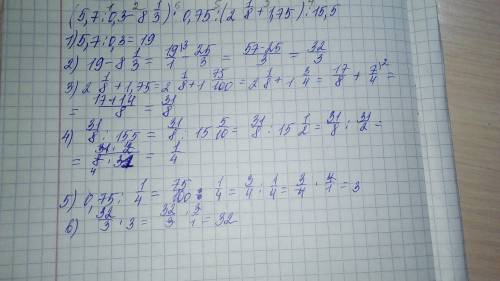 (5,7 : 0,3 - 8 1/3) · 0,75 : (2 1/8 + 1,75) : 15,5
1) 5,7 : 0,3 = 19
2) 19 - 8 1/3 = 19\3/1 - 25/3 = 57-25/3 = 32/3
3) 2 1/8 + 1,75 = 2 1/8 + 1 75/100 = 2 1/8 + 1 3/4 = 17/8 + 7\2/4 =
= 17+14/8 = 31/8
4) 31/8 : 155 = 31/8 : 15 5/10 = 31/8 : 15 1/2 = 31/8 : 31/2 =
= 31 · 2/8 · 31 = 1/4
5) 0,75 : 1/4 = 75/100 : 1/4 = 3/4 : 1/4 = 3/4 · 4/1 = 3
6) 32/3 · 3 = 32/3 · 3/1 = 32